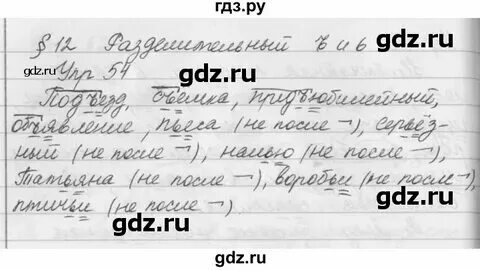 гдз.ру
§ 12 Разделительный ъ и ь
gdz.ru
Упр 54 gdz.ru
Подъезд, съёмка, предъюбилейный,
gdz.ru gdz.ru
объявление, пьеса (не после ¬), серьёз-
ный (не после ¬), налью (не после ¬),
gdz.ru gdz.ru
Татьяна (не после ¬), воробьи (не после ¬)
птичьи (не после ¬).
gdz.ru gdz.ru
gdz.ru